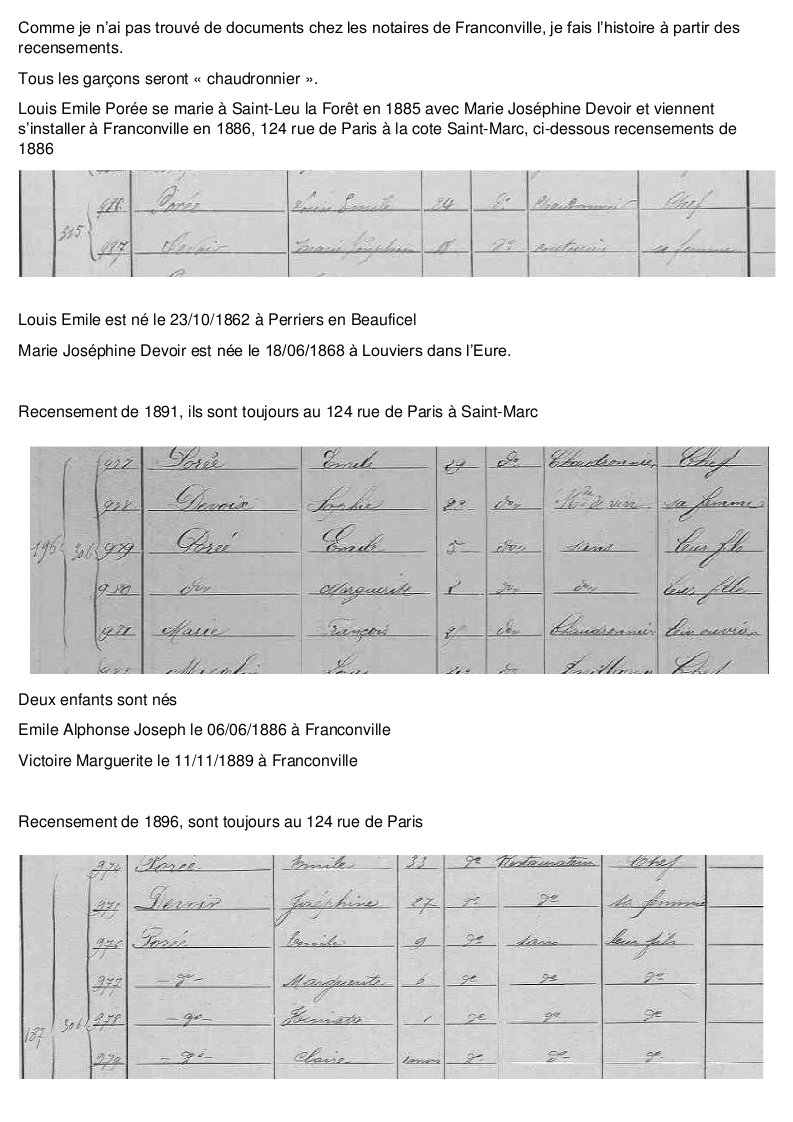 Comme je n'ai pas trouvé de documents chez les notaires de Franconville, je fais l'histoire à partir des
recensements.
Tous les garçons seront « chaudronnier ».
Louis Emile Porée se marie à Saint-Leu la Forêt en 1885 avec Marie Joséphine Devoir et viennent
s'installer à Franconville en 1886, 124 rue de Paris à la cote Saint-Marc, ci-dessous recensements de
1886
986 Porée Louis Emile 24 do Chaudronnier Chef
315 987 Devoir Marie Joséphine 18 do couturière sa femme
Louis Emile est né le 23/10/1862 à Perriers en Beauficel
Marie Joséphine Devoir est née le 18/06/1868 à Louviers dans l'Eure.
Recensement de 1891, ils sont toujours au 124 rue de Paris à Saint-Marc
977 Porée Emile 29 do Chaudronnier Chef
978 Devoir do Mde de vin sa femme
196 306 979 Porée Emile 5 do sans leur fils
980 do Marguerite do do leur fille
981 Marie François do Chaudronnier leur ouvrier
Deux enfants sont nés
Emile Alphonse Joseph le 06/06/1886 à Franconville
Victoire Marguerite le 11/11/1889 à Franconville
Recensement de 1896, sont toujours au 124 rue de Paris
974 Porée Emile 33 do Restaurateur Chef
975 Devoir Joséphine 27 do do sa femme
976 Porée Emile 9 do sans leur fils
977 do Marguerite 6 do do do
187 306 978 do 1 do do do
979 do Claire do do do